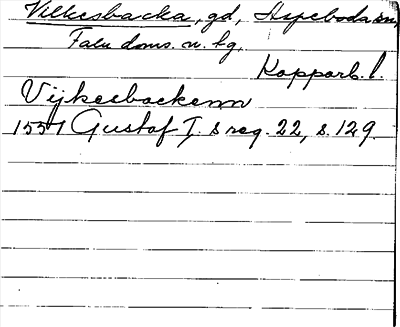 Vilkesbacka, gd, Aspeboda sn,
Falu doms. n. lg.
Kopparb. l.
Vijkesbackenn
1551 Gustaf I.s reg. 22, s. 129.